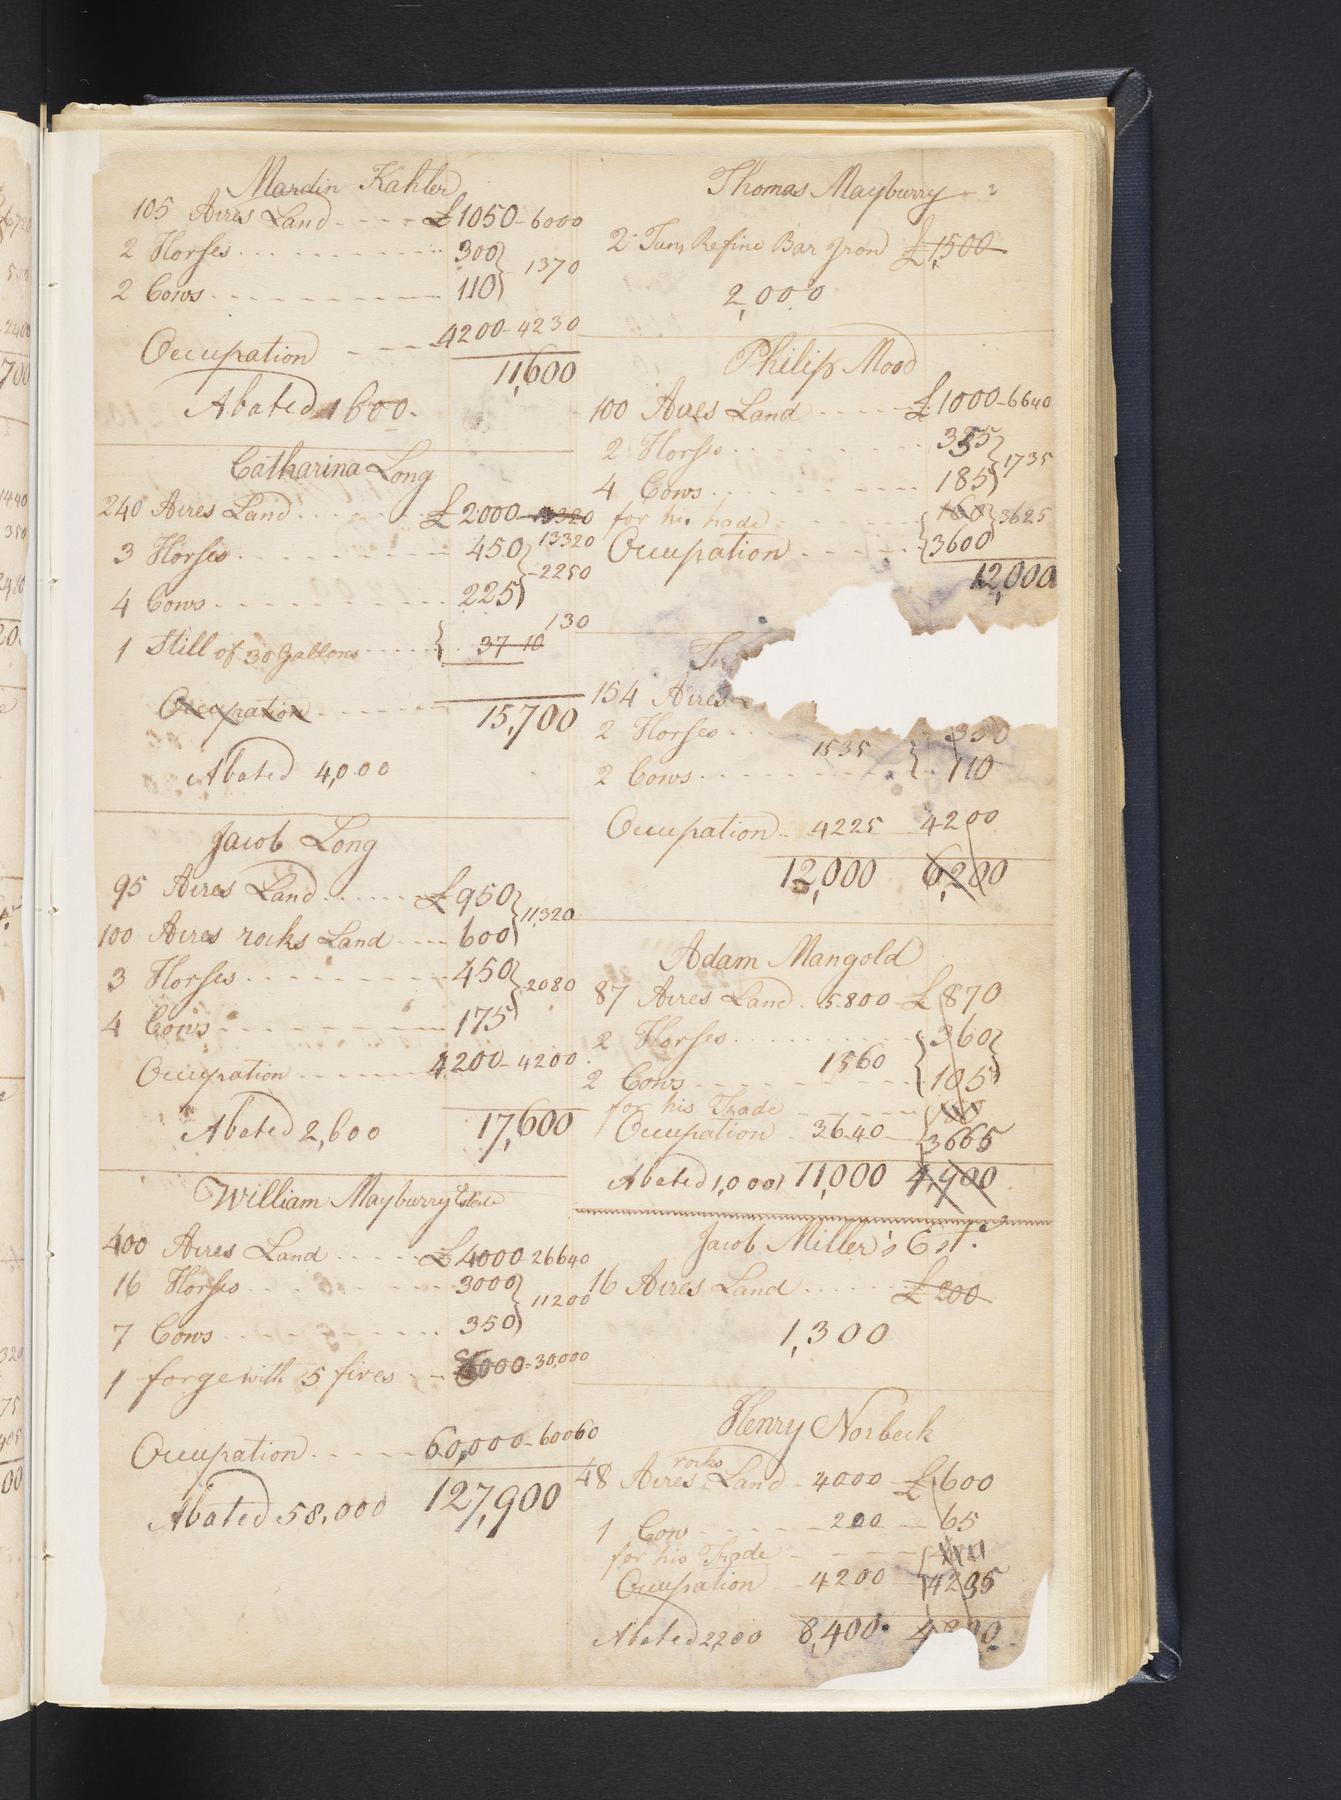 Mardin Kahler
105 Acres Land - - - - £1050-6000
2 Horses - - - - 300
1370
2 Cows - - - - 110
Occupation - - - 4200-4230
11,600
Abated 1600.
Catharina Long
240 Acres Land - - - - £2000 13320
13320
3 Horses - - - - 450
-2250
4 Cows - - - - 225
130
1 Still of 30 Gallons - - - - 37-10
Occupation - - - -
15,700
Abated 4,000
Jacob Long
95 Acres Land - - - - £950
11,320
100 Acres rocks Land - - - - 600
3 Horses - - - - 450
2080
4 Cows - - - - 175
Occupation - - - - 4200-4200
Abated 2,600 17,600
William Mayburry Estate
400 Acres Land - - - - £4000-26640
16 Horses - - - - 3000
11200
7 Cows - - - - 350
1 forge with 5 fires - - 000-30,000
Occupation - - - - 60,000-60060
Abated 58,000 127,900
Thomas Mayburry
2 Tuns Refine Bar Iron £1,500
2,000
Philip Mood
100 Acres Land - - - - £1000-6640
2 Horses - - - -
1735
4 Cows - - - - 185
for his trade - - - - 100
3625
Occupation - - - - 3600
12,000
154 Acres
2 Horses - - - 350
1535
2 Cows - - - - 110
Occupation - 4225 4200
12,000 6,200
Adam Mangold
87 Acres Land - 5800 - £870
2 Horses - - - - 360
1560
2 Cows - - - - 105
for his Trade - - - -
Occupation - 3640 - 3665
Abated 1,000 11,000 4,900
Jacob Miller's Est.
16 Acres Land - - - - £200
1,300
Henry Norbeck
rocks
48 Acres Land - 4000 - £600
1 Cow - - - - 200 - 65
for his Trade - - - -
Occupation - 4200 - 4235
Abated 2200 8,400